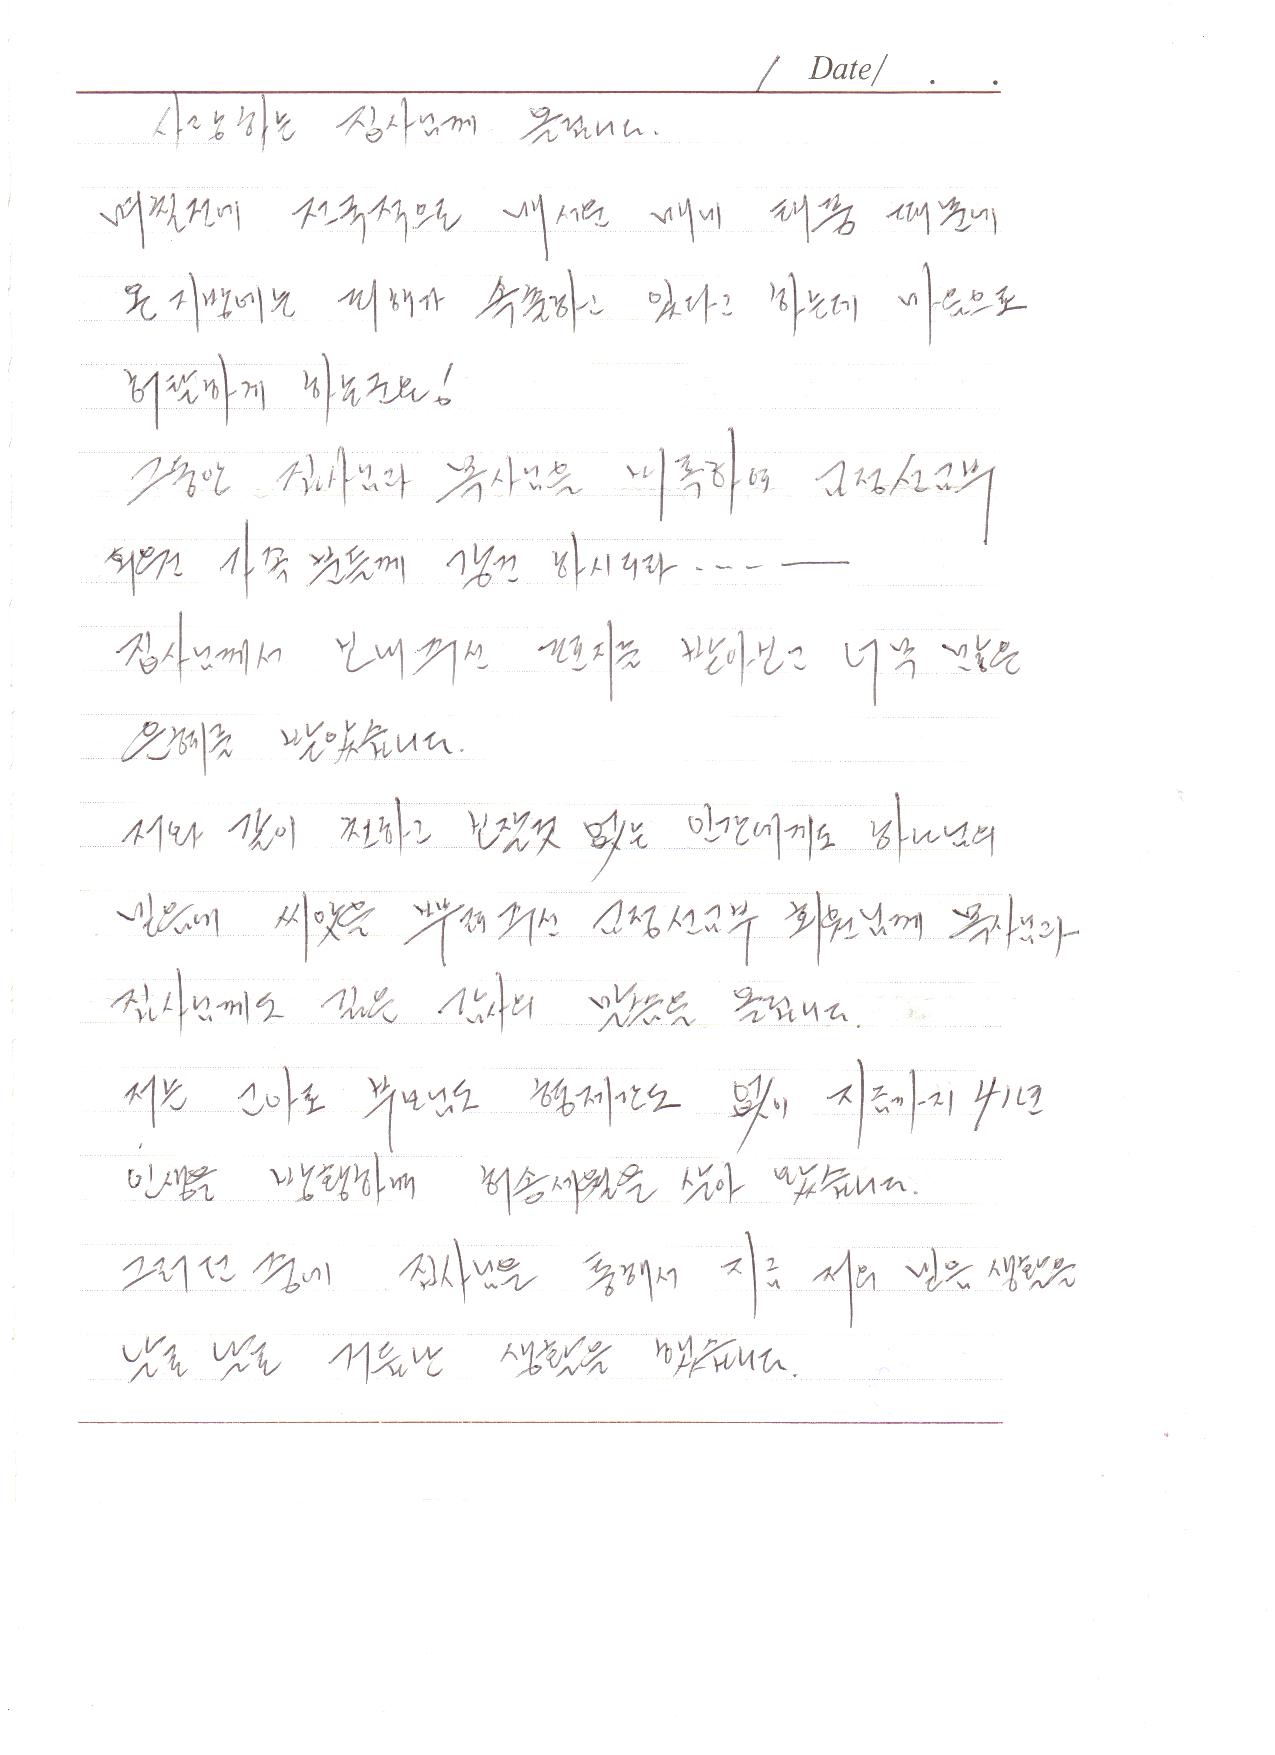 Date/ . .
사랑하는 집사님께 올립니다.
며칠전에 전국적으로 매서운 매미 태풍 때문에
온 지방에는 피해가 속출하고 있다고 하는데 마음으로
허탈하게 하는군요!
그동안 집사님과 목사님을 비롯하여 교정선교부
회원진 가족 분들께 강건 하시리라 ----
집사님께서 보내주신 편지를 받아보고 너무 많은
은혜를 받았습니다.
저와 같이 천하고 보잘것 없는 인간에게도 하나님의
믿음에 씨앗을 뿌려 주신 교정선교부 회원님께 목사님과
집사님께도 깊은 감사의 말씀을 올립니다.
저는 고아로 부모님도 형제간도 없이 지금까지 41년
인생을 방황하며 허송세월을 살아 왔습니다.
그러던 중에 집사님을 통해서 지금 저의 믿음 생활을
날로 날로 거듭난 생활을 했습니다.